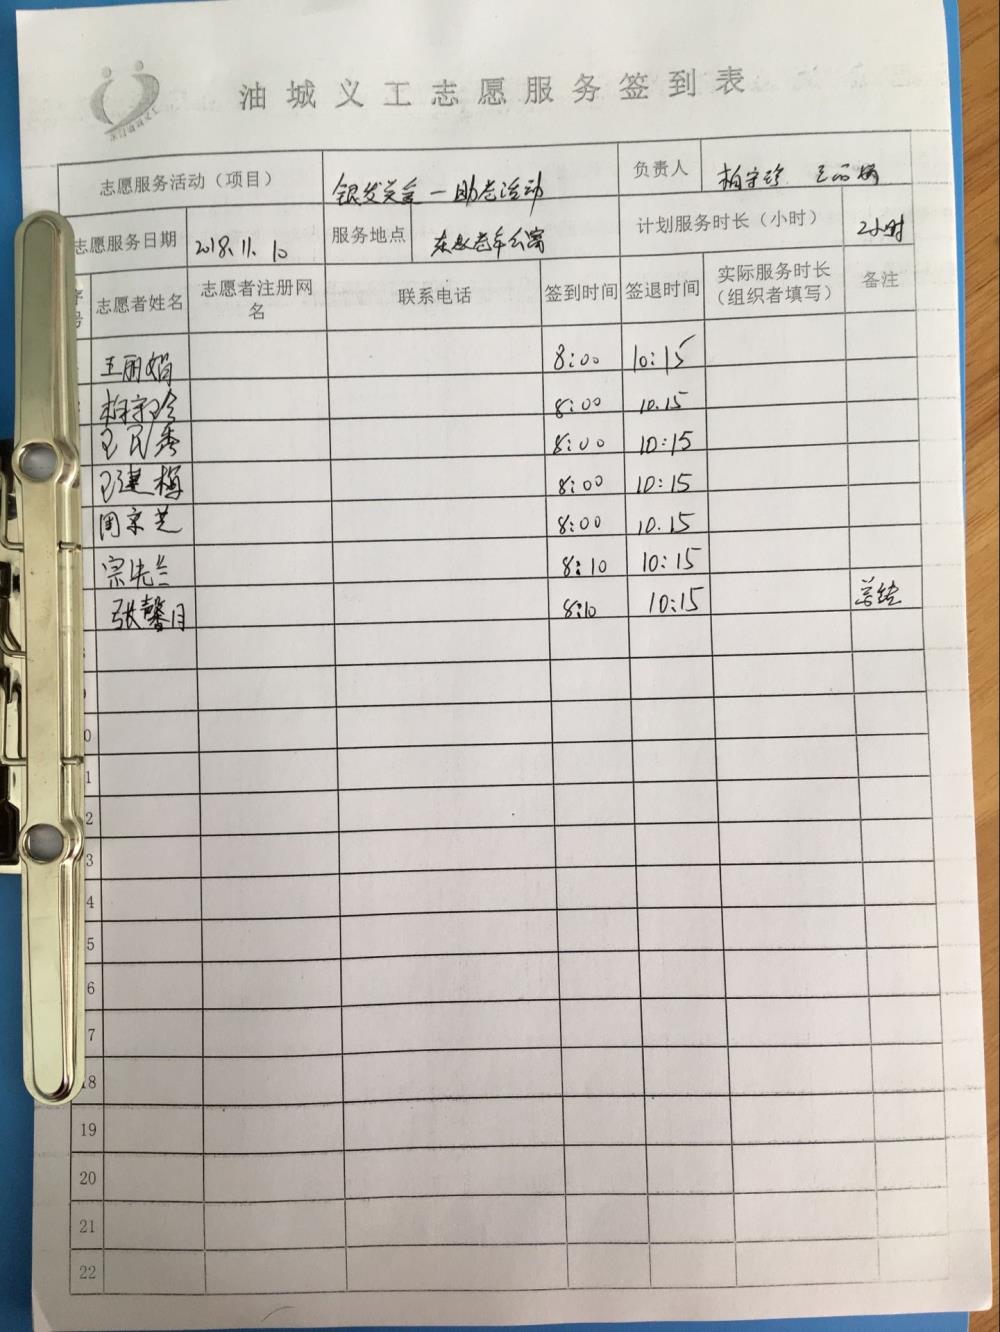 油城义工志愿服务签到表
志愿服务活动（项目） 银发关爱一助老活动 负责人 柏守珍 王丽娟
志愿服务日期 2018.11.10 服务地点 东教老年公寓 计划服务时长（小时） 2小时
序号 志愿者姓名 志愿者注册网名 联系电话 签到时间 签退时间 实际服务时长（组织者填写） 备注
王丽娟 8:00 10:15
柏守珍 8:00 10.15
王民秀 8:00 10:15
王建梅 8:00 10:15
周京芝 8:00 10.15
宗先兰 8:10 10:15
张馨月 8:10 10:15 总结
0
1
2
3
4
5
6
7
18
19
20
21
22